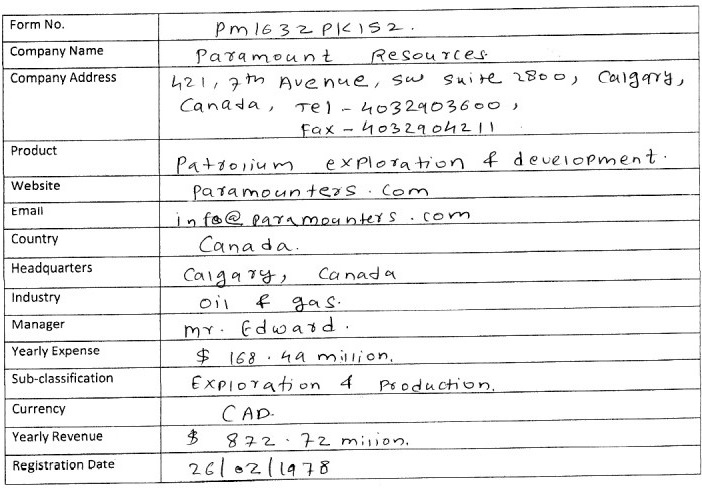 Form No. Pm1632PK152.
Company Name Paramount Resources.
Company Address 421, 7th Avenue, SW Suite 2800, Calgary,
Canada, Tel - 4032903600,
Fax - 4032904211
Product Patrolium exploration & development.
Website Paramounters.com
Email info@paramounters.com
Country Canada.
Headquarters Calgary, Canada
Industry Oil & gas.
Manager Mr. Edward.
Yearly Expense $ 168.49 million.
Sub-classification Exploration & Production.
Currency CAD.
Yearly Revenue $ 872.72 miiion.
Registration Date 26/02/1978